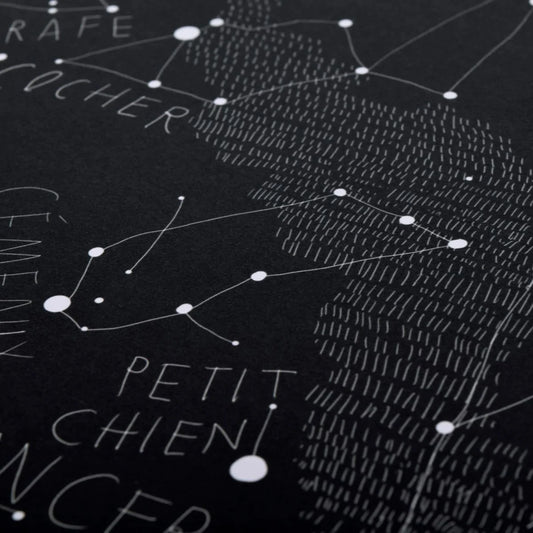 RAFE
COCHER
GÉMEAUX
PETIT
CHIEN
NCER